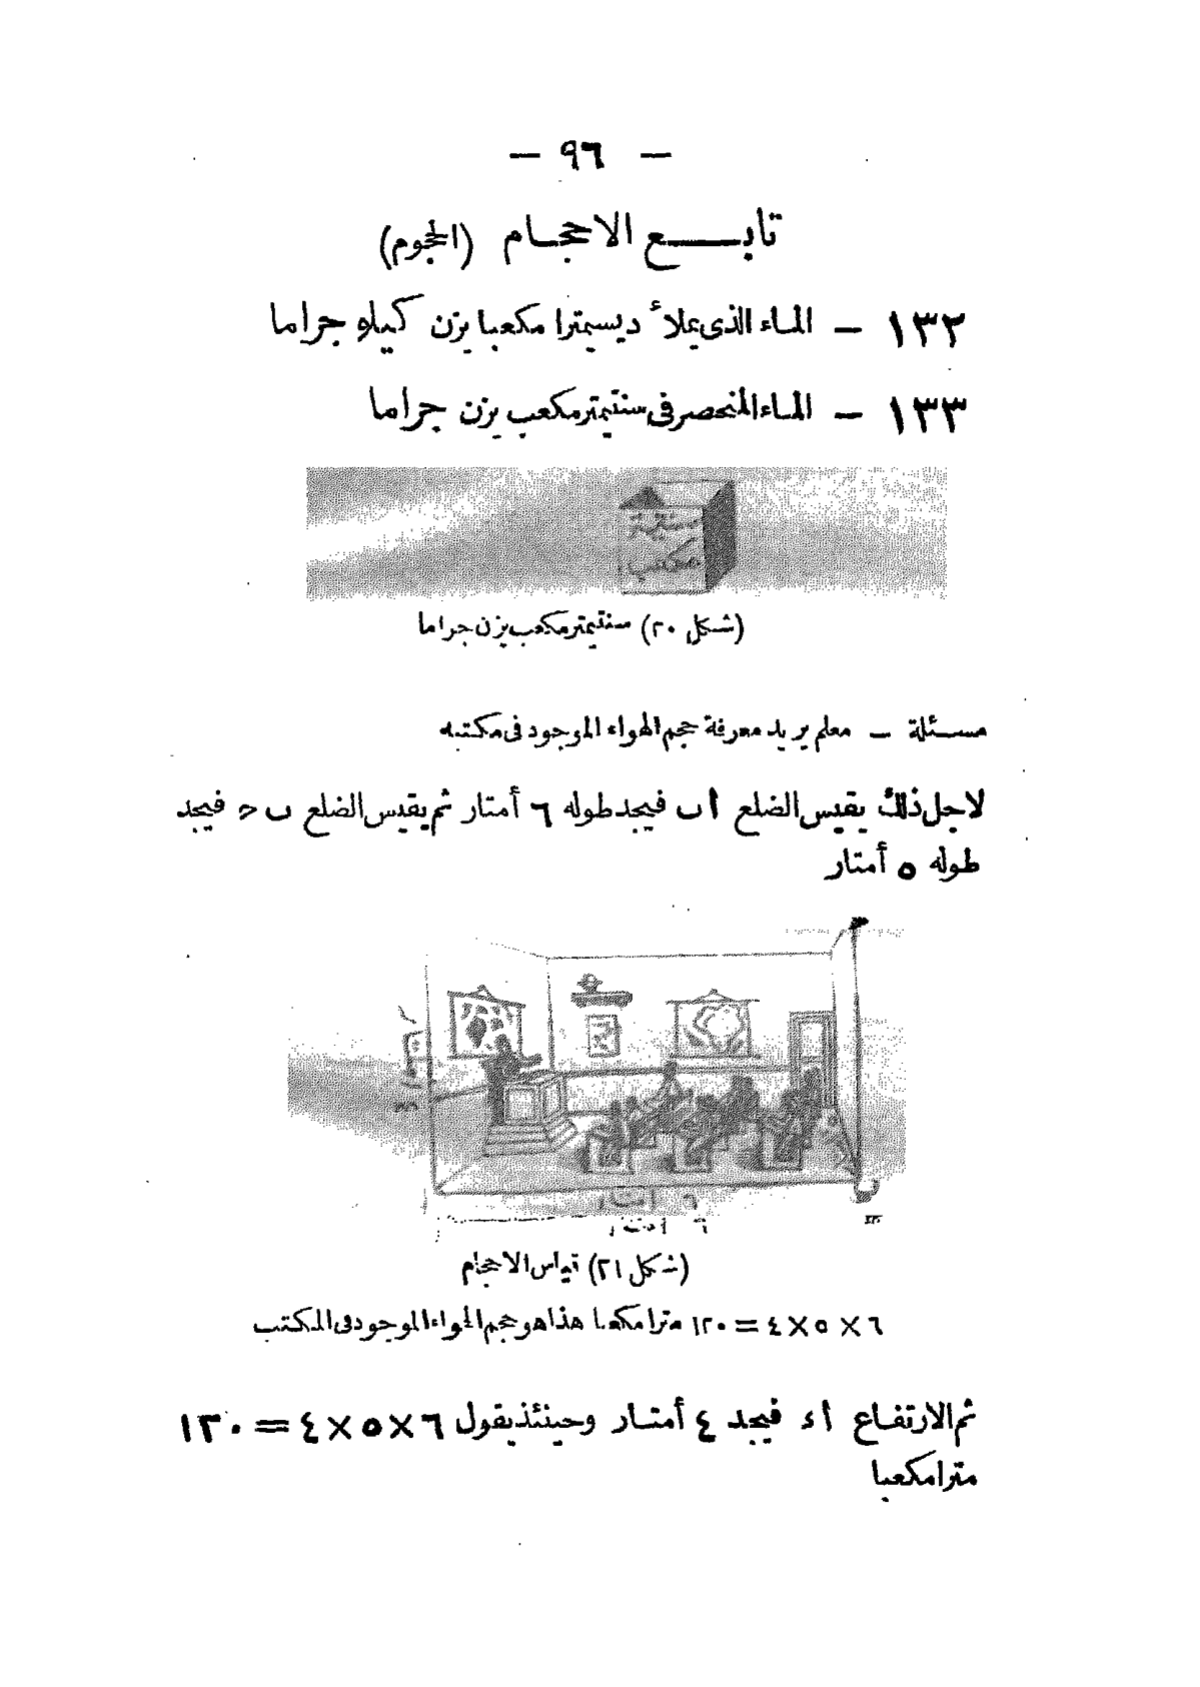 — ٩٦ —
تابع الاحجام (الحجوم)
١٣٢ — الماء الذى يملأ ديسيمترا مكعبا يزن كيلو جراما
١٣٣ — الماء المنحصر فى سنتيمتر مكعب يزن جراما
سنتيمتر
مكعب
(شكل ٢٠) سنتيمتر مكعب يزن جراما
مسئلة — معلم يريد معرفة حجم الهواء الموجود فى مكتبه
لاجل ذلك يقيس الضلع أ ب فيجد طوله ٦ أمتار ثم يقيس الضلع ب ح فيجد
طوله ٥ أمتار
٦ أمتار
(شكل ٢١) قياس الاحجام
٦ × ٥ × ٤ = ١٢٠ مترا مكعبا هذا هو حجم الهواء الموجود فى المكتب
ثم الارتفاع أ ء فيجد ٤ أمتار وحينئذ يقول ٦ × ٥ × ٤ = ١٢٠
مترا مكعبا